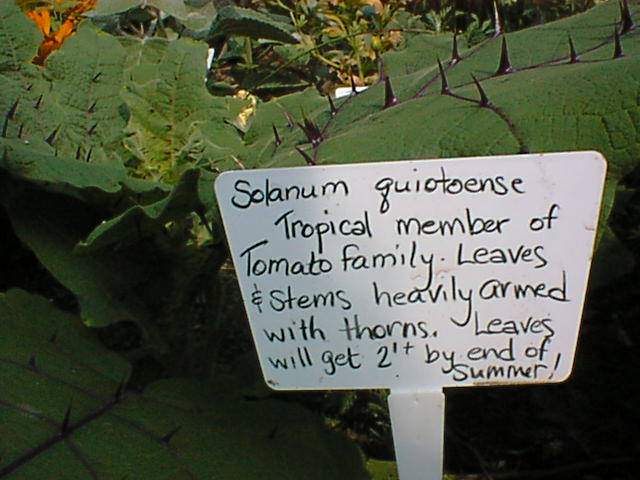 Solanum quiotoense
Tropical member of
Tomato family. Leaves
& Stems heavily armed
with thorns. Leaves
will get 2'+ by end of
Summer!